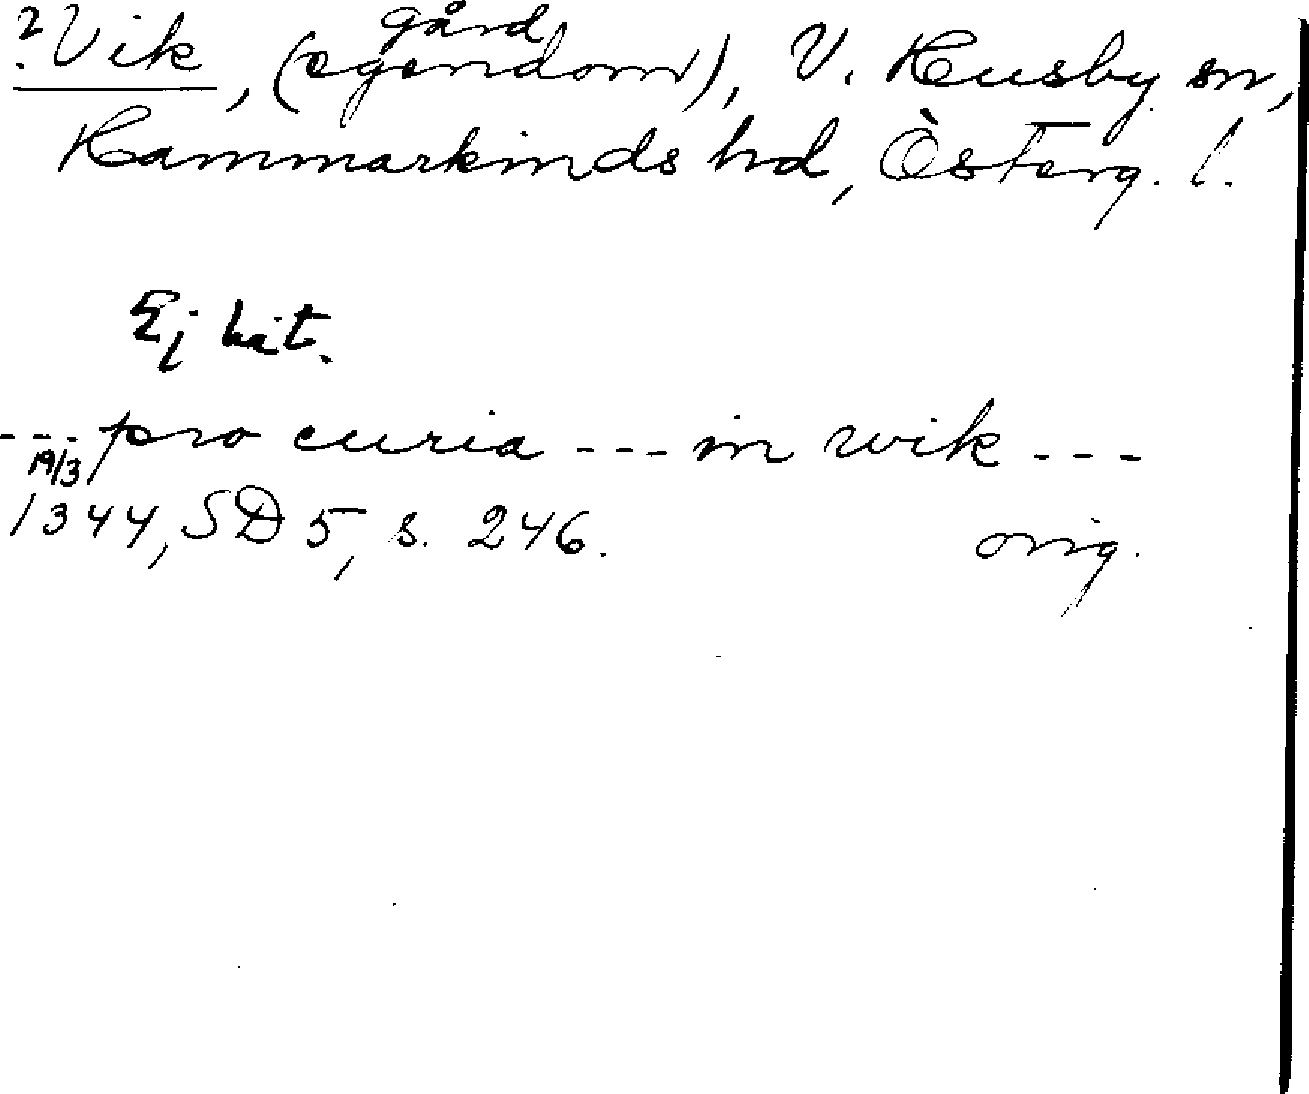 ? Vik, (egendom), gård, V. Husby sn,
Hammarkinds hd, Österg. l.
Ej hit.
--- pro curia --- in wik ---
19/3
1344, SD 5, s. 246. orig.